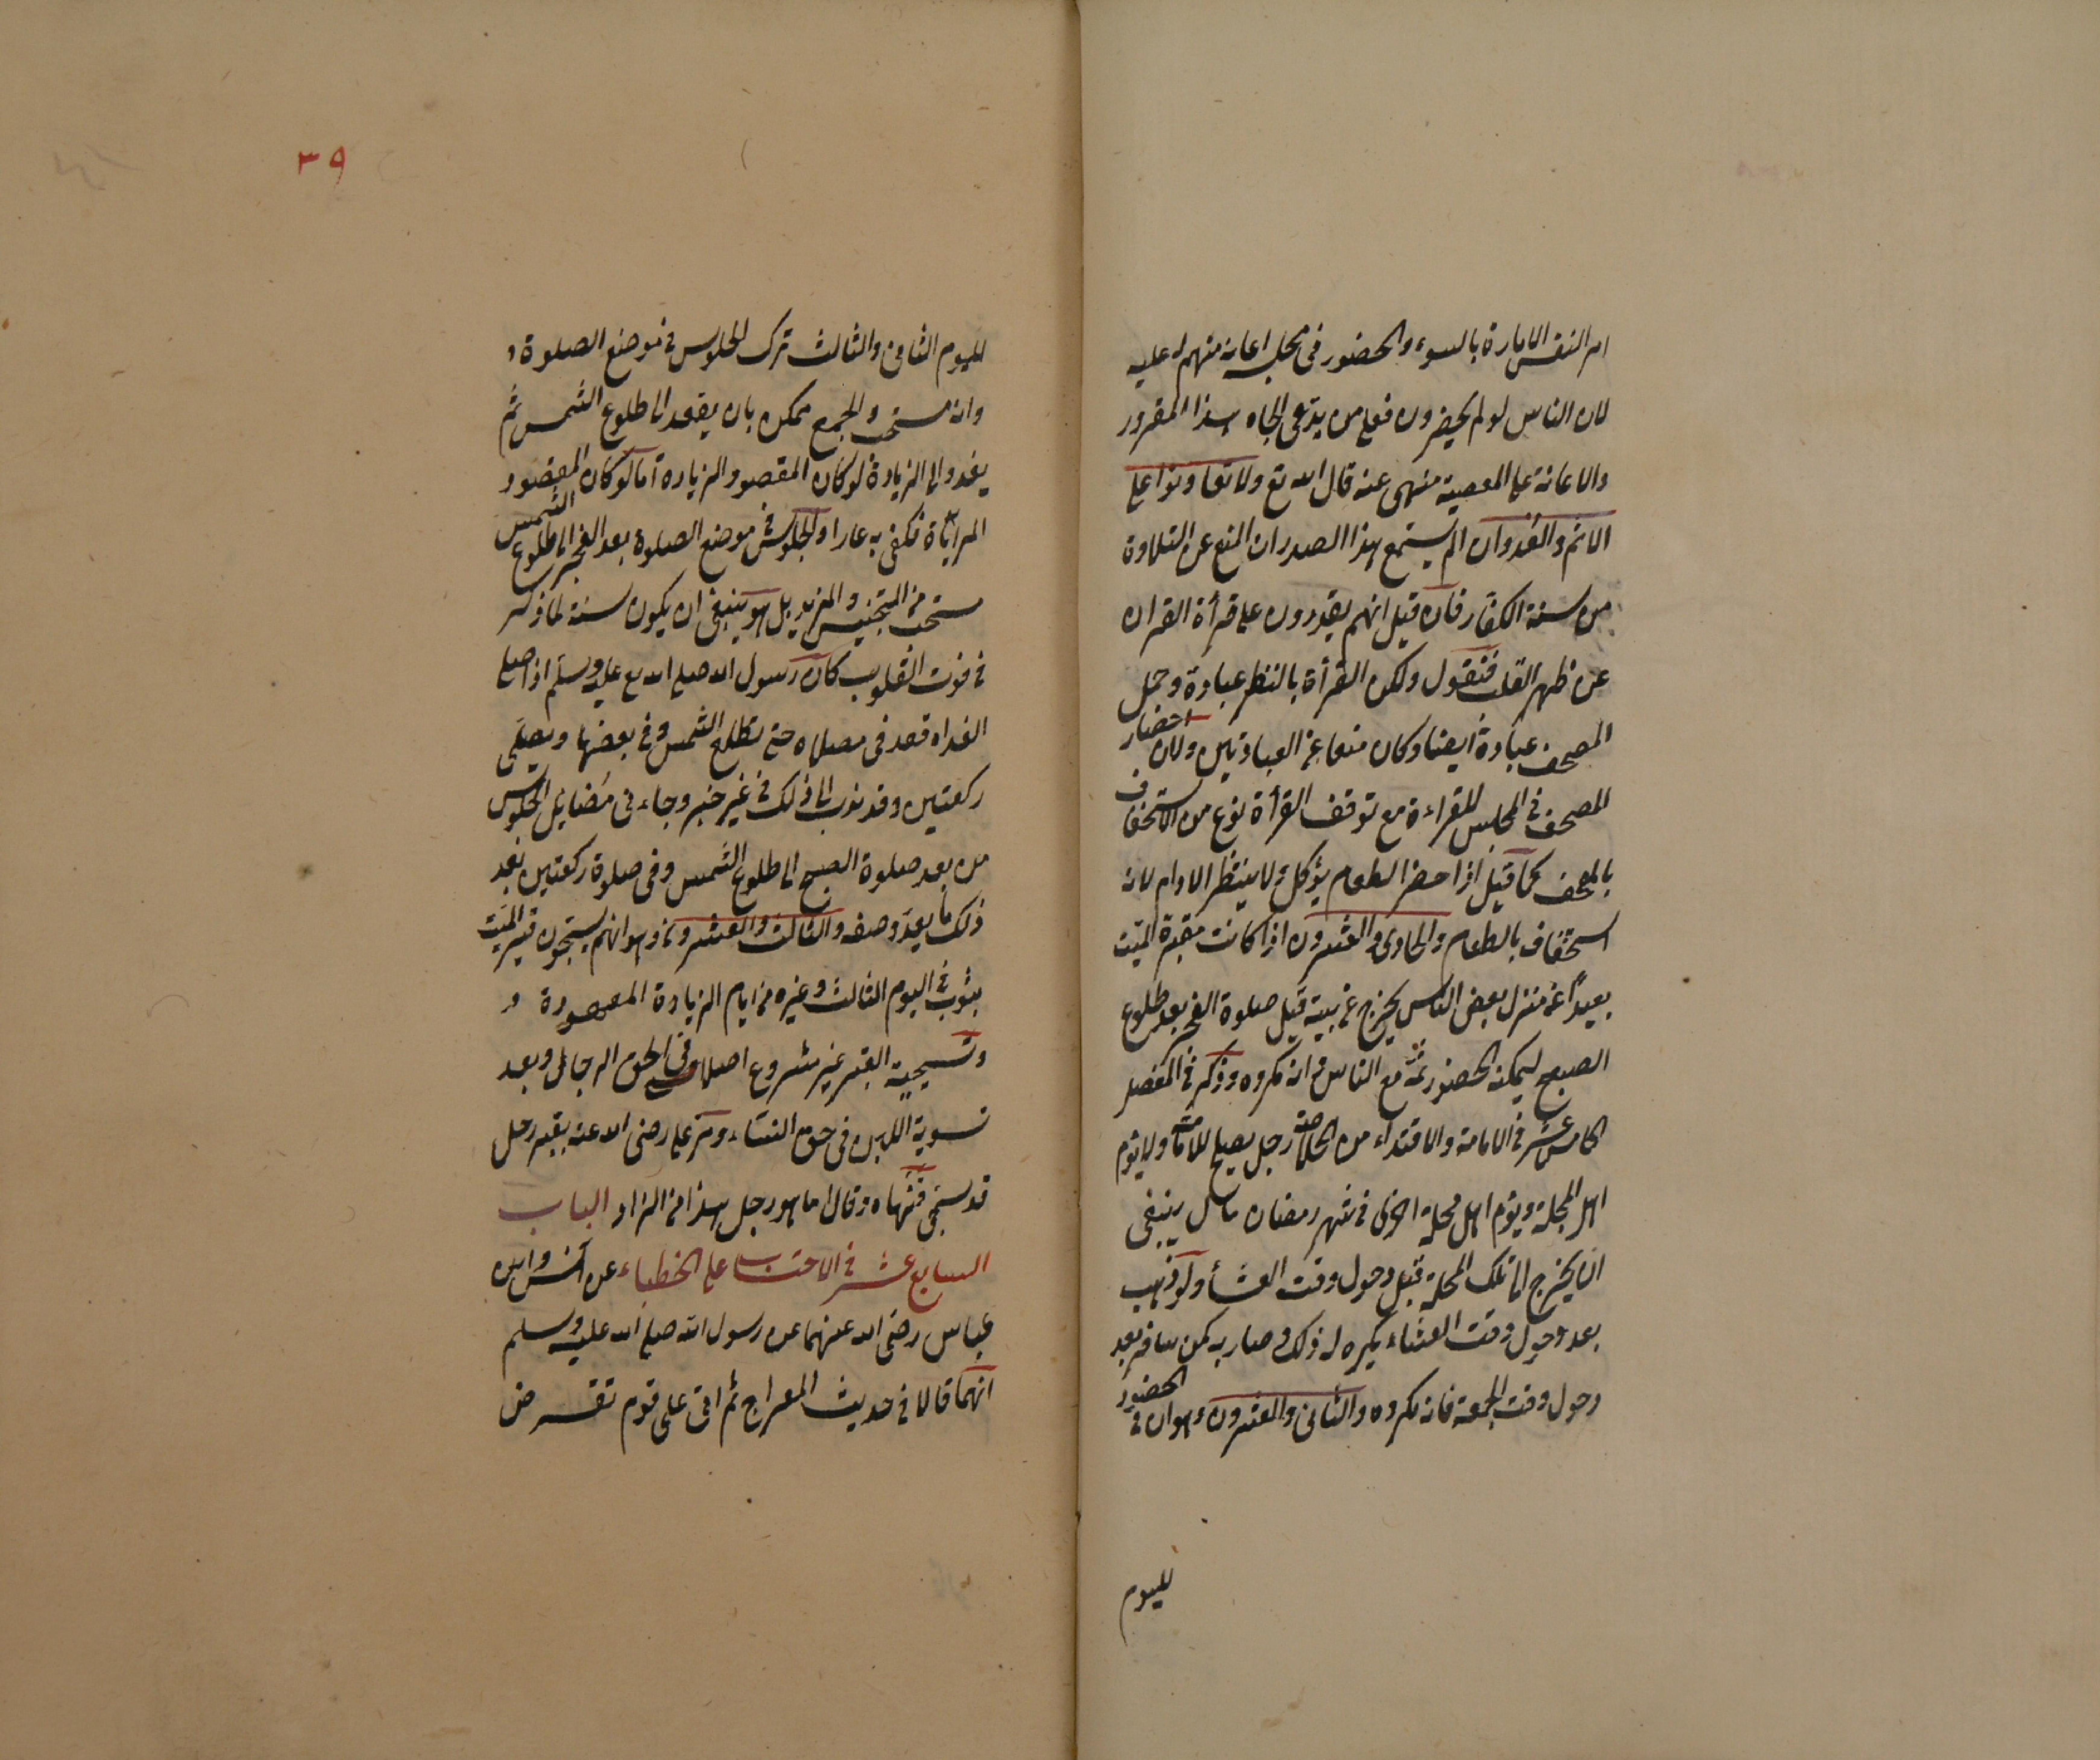 امر النفس الامارة بالسوء والحضور فى محله اعانة منهم له عليه
لان الناس لو لم يحضرون فعلى من يدعى الجاه هذا المغرور
والاعانة على المعصية منهى عنه قال الله تع ولا تعاونوا على
الاثم والعدوان الم يستمع هذا الصدر ان المنع عن التلاوة
من سنة الكفار فان قيل انهم يقدرون على قرأة القران
عن ظهر القلب فنقول ولكن القرأة بالنظر عبادة وحمل
المصحف عبادة ايضا وكان منعا عن العبادتين ولان احضار
المصحف فى المجلس للقراءة مع توقف القرأة نوع من الاستخفاف
بالمصحف كما قيل اذا حضر الطعام يؤكل ولا ينتظر الادام لانه
استخفاف بالطعام والحادى والعشرون اذا كانت مقبرة الميت
بعيداً عن منزل بعض الناس يخرج عن بيته قبل صلوة الفجر بعد طلوع
الصبح ليمكنه الحضور ثمه مع الناس فى انه مكروه وذكر فى المفصل
الخامس عشر فى الامامة والاقتداء من الخلاصة رجل يصلح للامامة ولا يؤم
اهل المحلة ويؤم اهل محلة اخرى فى شهر رمضان قال ينبغى
ان يخرج الى تلك المحلة قبل دخول وقت العشأ ولو ذهب
بعد دخول وقت العشاء يكره له ذلك وصار به كمن سافر بعد
دخول وقت الجمعة فانه مكروه والثانى والعشرون وهو ان فى الحضور
لليوم
٣٩
لليوم الثانى والثالث ترك الجلوس فى موضع الصلوة و
وانه مستحب والجمع ممكن بان يقعد الى طلوع الشمس ثم
يغدو الى الزيادة لو كان المقصود الزياده اما لو كان المقصود
المراياة فكفى به عارا والجلوس فى موضع الصلوة بعد الفجر الى طلوع الشمس
مستحب من التجنيس والمزيد بل هو ينبغى ان يكون سنة لما ذكر
فى قوت القلوب كان رسول الله صلى الله تع عليه وسلم اذا صلى
الغداه قعد فى مصلاه حتى تطلع الشمس وفى بعضها ويصلى
ركعتين وقد ندب الى ذلك فى غير خبر وجاء فى فضايل الجلوس
من بعد صلوة الصبح الى طلوع الشمس وفى صلوة ركعتين بعد
ذلك ما يعد وصفه والثالث والعشرون وهو انهم يسجون قبر الميت
بثوب فى اليوم الثالث وغيره من ايام الزيادة المعهودة و
وتسجية القبر غير مشروع اصلا فى الحق الرجال وبعد
تسوية اللبن فى حق النساء ومر على رضى الله عنه بقبر رجل
قد سجى فنهاه وقال انما هو رجل هذا من الزاد الباب
السابع عشر فى الاحتساب على الخطباء عن انس وابن
عباس رضى الله عنهما عن رسول الله صلى الله عليه وسلم
انهما قالا فى حديث المعراج ثم اتى على قوم تقرض